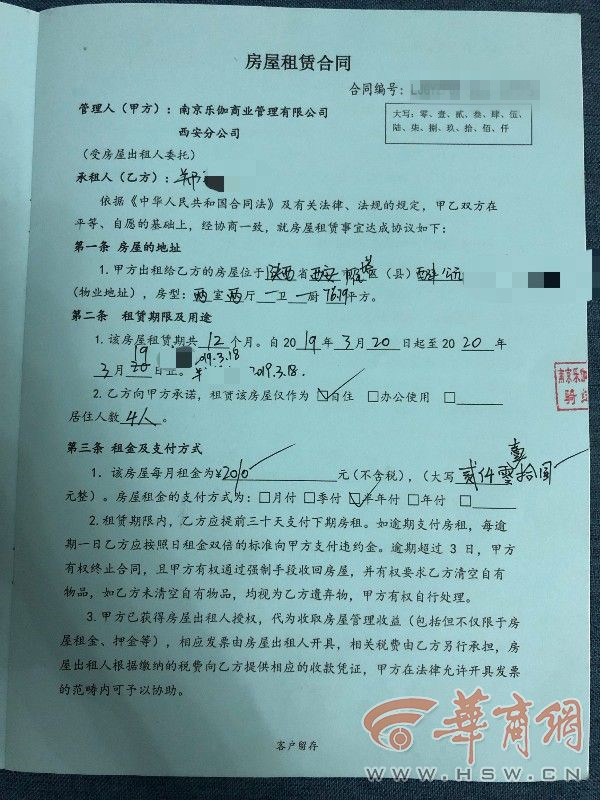 房屋租赁合同
合同编号：
管理人（甲方）：南京乐伽商业管理有限公司
西安分公司
大写：零、壹、贰、叁、肆、伍、
陆、柒、捌、玖、拾、佰、仟
（受房屋出租人委托）
承租人（乙方）：郑
依据《中华人民共和国合同法》及有关法律、法规的规定，甲乙双方在
平等、自愿的基础上，经协商一致，就房屋租赁事宜达成协议如下：
第一条 房屋的地址
1.甲方出租给乙方的房屋位于陕西省西安市雁塔区（县）
（物业地址），房型：两室两厅一卫一厨 平方。
第二条 租赁期限及用途
1.该房屋租赁期共12个月。自2019年3月20日起至2020年
3月19 20日止。 2019.3.18 2019.3.18.
2.乙方向甲方承诺，租赁该房屋仅作为☑自住 □办公使用 □
居住人数4人。
南京乐伽
骑缝
第三条 租金及支付方式
1．该房屋每月租金为¥2010元(不含税)，(大写贰仟零壹拾圆
元整）。房屋租金的支付方式为：□月付 □季付 ☑半年付 □年付 □
2.租赁期限内，乙方应提前三十天支付下期房租。如逾期支付房租，每逾
期一日乙方应按照日租金双倍的标准向甲方支付违约金。逾期超过 3 日，甲方
有权终止合同，且甲方有权通过强制手段收回房屋，并有权要求乙方清空自有
物品，如乙方未清空自有物品，均视为乙方遗弃物，甲方有权自行处理。
3.甲方已获得房屋出租人授权，代为收取房屋管理收益（包括但不仅限于房
屋租金、押金等），相应发票由房屋出租人开具，相关税费由乙方另行承担，房
屋出租人根据缴纳的税费向乙方提供相应的收款凭证，甲方在法律允许开具发票
的范畴内可予以协助。
客户留存
華商網
WWW.HSW.CN